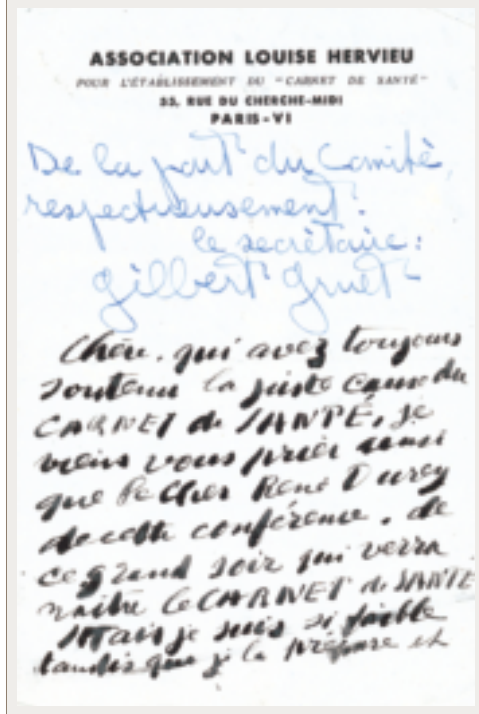 ASSOCIATION LOUISE HERVIEU
POUR L'ÉTABLISSEMENT DU "CARNET DE SANTÉ"
55, RUE DU CHERCHE-MIDI
PARIS-VI
De la part du Comité,
respectueusement.
le secrétaire:
Gilbert Gruet
Chère. qui avez toujours
soutenu la juste cause du
CARNET de SANTÉ, je
viens vous prier ainsi
que le cher René Durey
de cette conférence. de
ce grand soir qui verra
naître le CARNET de SANTE
Mais je suis si faible
tandis que je la prépare et